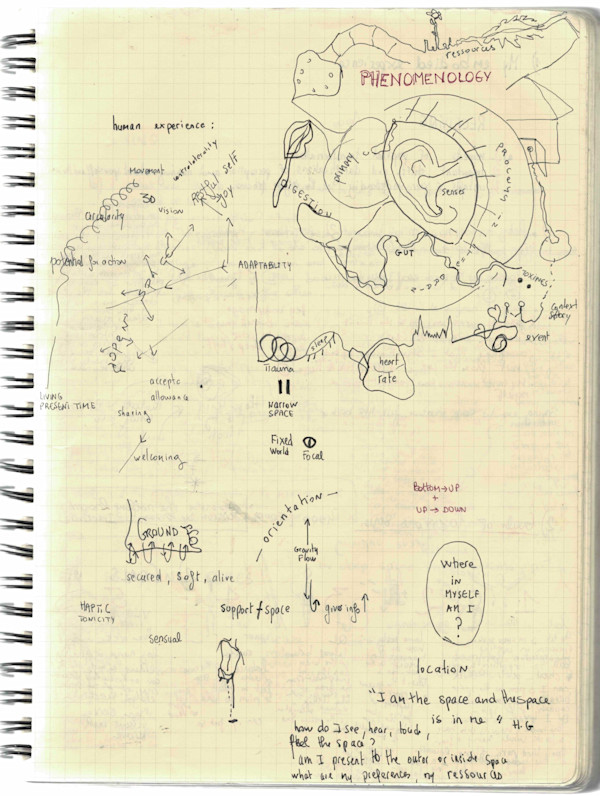 ressources
PHENOMENOLOGY
human experience:
movement
3D
vision
joy
circularity
PROCESS
primary
senses
DIGESTION
GUT
potential for action
SPACE
ADAPTABILITY
TOXINES
context
story
event
OPEN
Trauma
heart
rate
LIVING
PRESENT TIME
NARROW
SPACE
accepta
allowance
sharing
Fixed
World
Focal
welcoming
BOTTOM → UP
+
UP → DOWN
orientation
GROUND
Gravity
Flow
secured, soft, alive
where
IN
MYSELF
AM I
?
HAPTIC
TONICITY
support + space
give info
sensual
location
"I am the space and the space
is in me" H.G
how do I see, hear, touch,
feel the space?
am I present to the outer or inside space
what are my preferences, my ressources